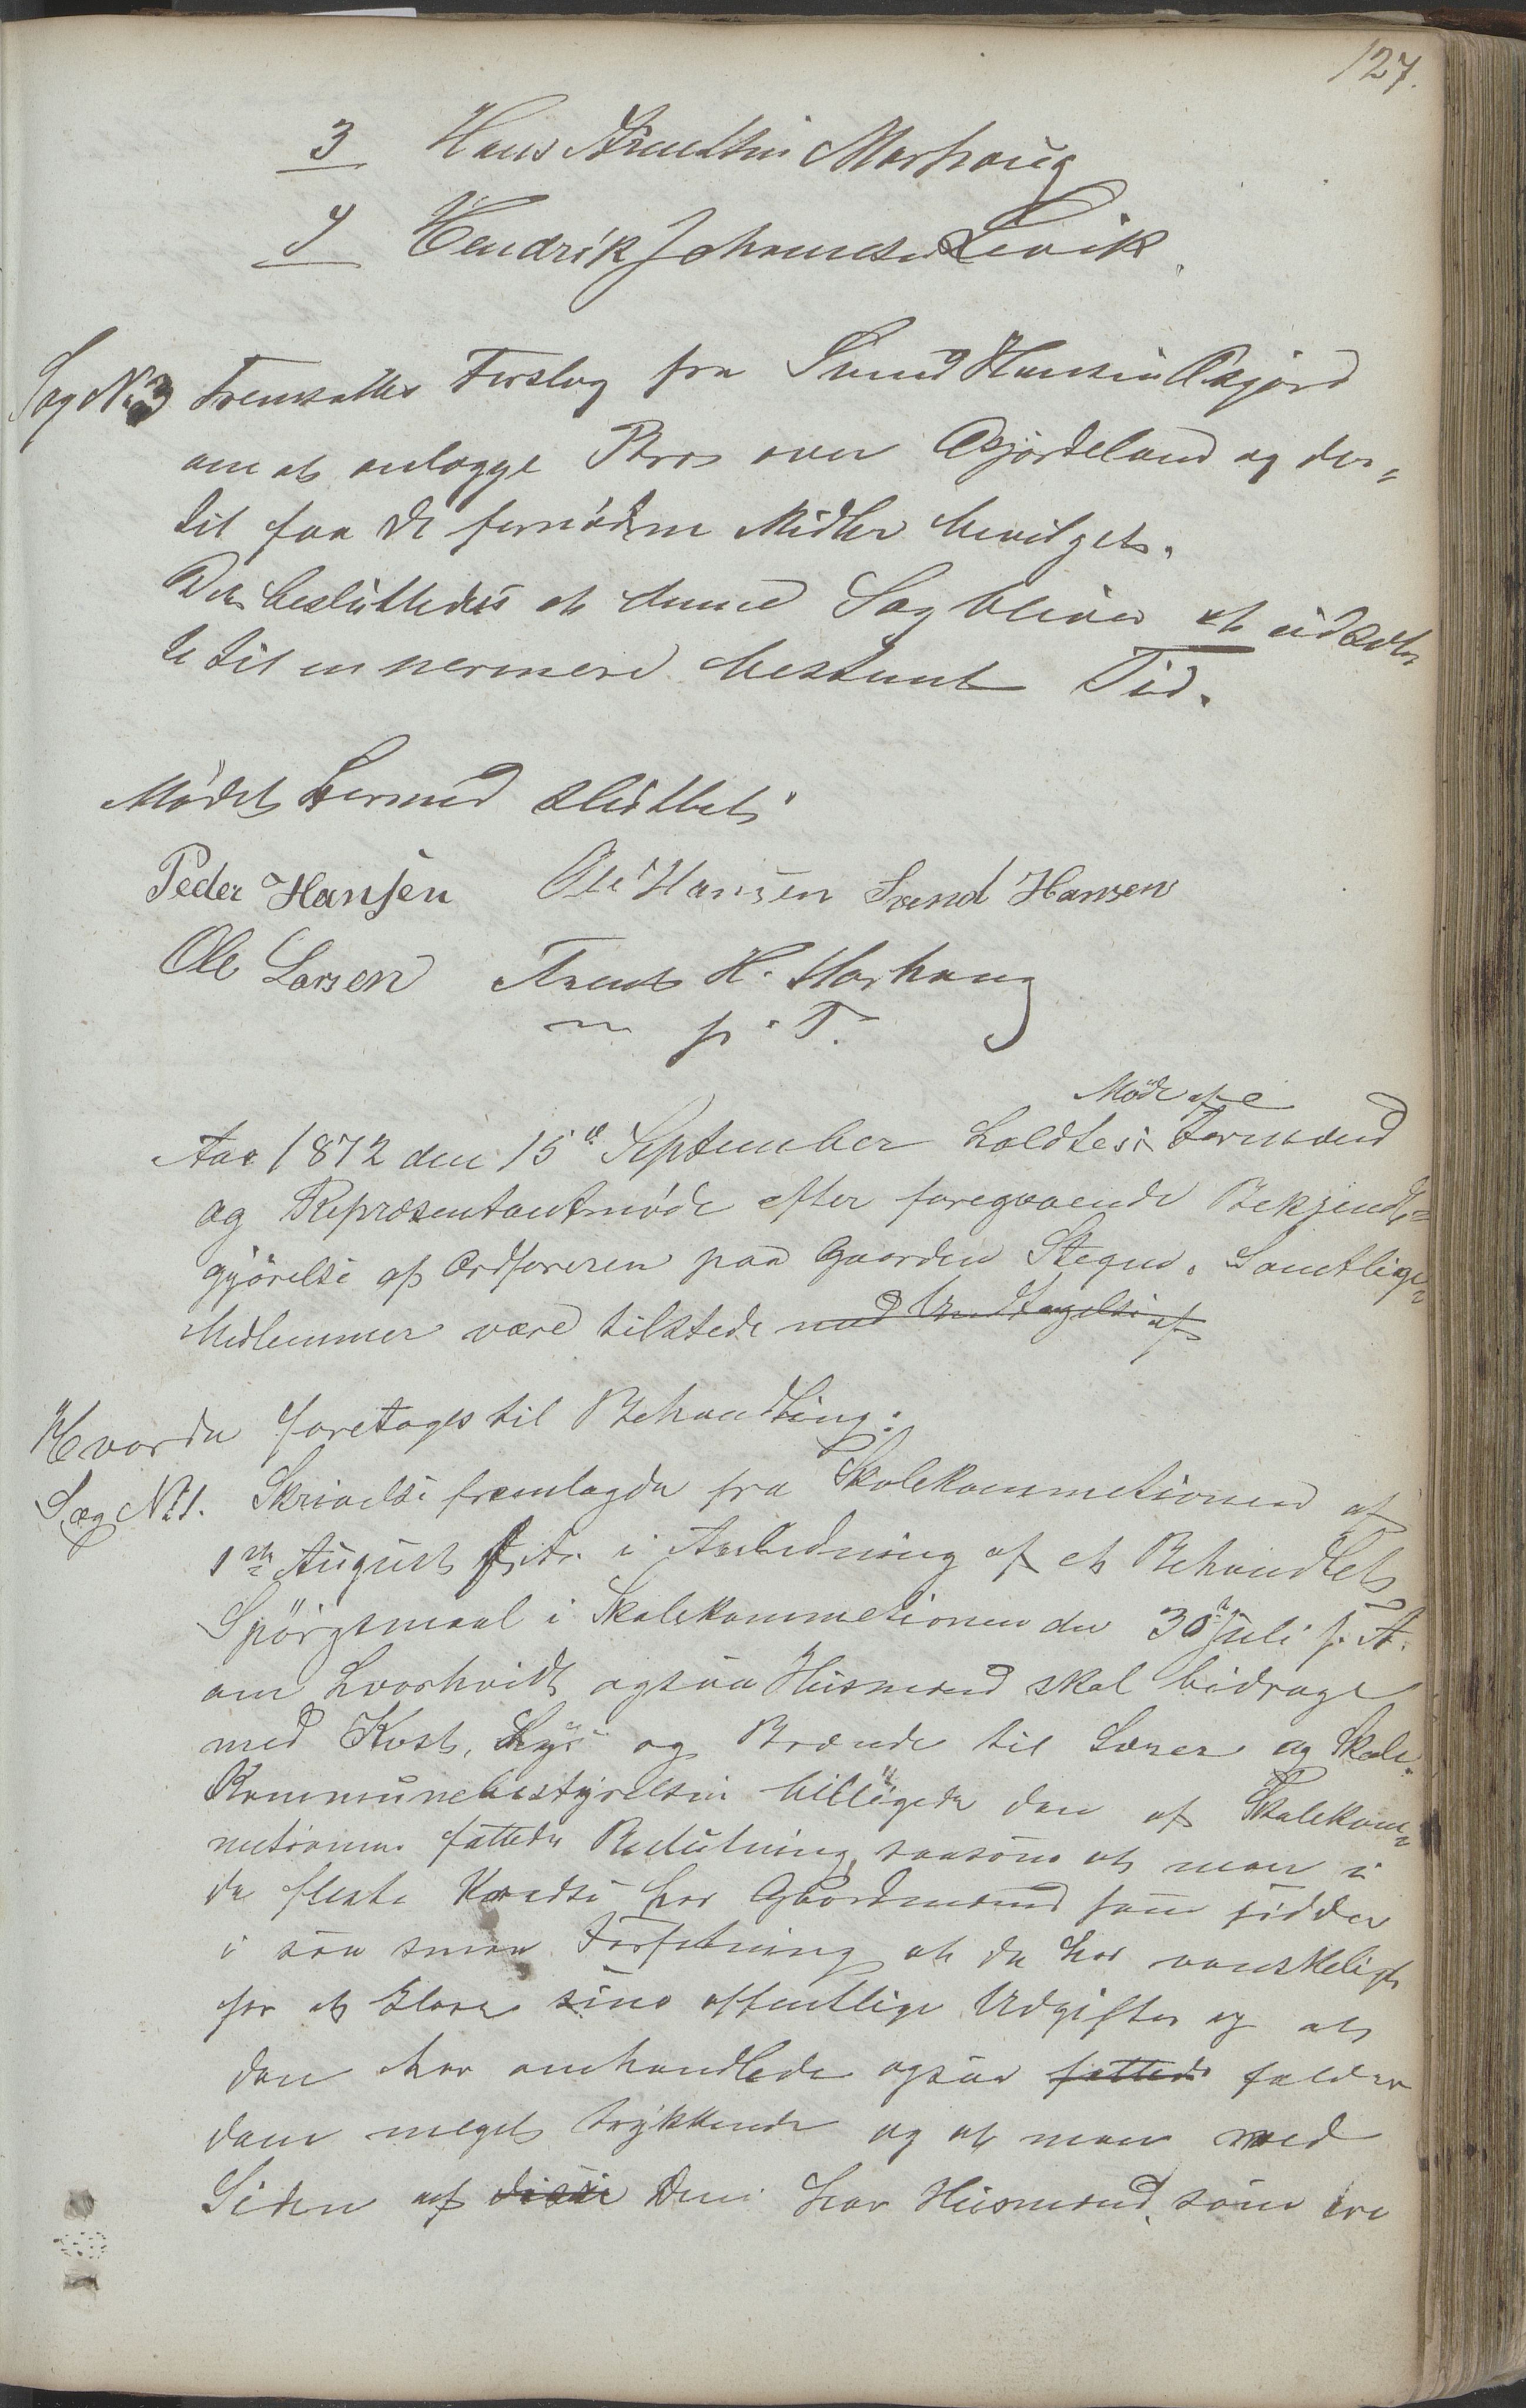 127.
3 Hans Arentsen Marhaug
4 Hendrik Johannesen Levik
Sag No 3 Fremsattes Forslag fra Svend Hansen Asgjord
om at anlægge Bro over Asgjordeland og der-
til faa de fornødne Midler bevilget.
Det besluttedes at denne Sag bliver at udsætt
te til en nermere bestemt Tid.
Mødet hermed sluttet
Peder Hansen Ole Hansen Svend Hansen
Ole Larsen Arent H. Marhaug
p. T.
Møde af
Aar 1872 den 15de September holdtes Formænd
og Repræsentantmøde efter foregaaende Bekjendt-
gjørelse af Ordføreren paa Gaarden Stegen. Samtlige
Medlemmer være tilstede med Undtagelse af
Hvorda foretages til Behandling:
Sag No 1. Skrivelse fremlagde fra Skolekommetionen af
1ste August f. A. i Anledning af et Behandlet
Spørgsmaal i Skolekommetionen den 30te Juli f. A.
om hvorhvidt ogsaa Husmænd skal bidrage
med Kost, Lys og Brænde til Lærer og Skole.
Kommunebestyrelsen billigede den af Skolekom-
metionen fattede Beslutning, saasom at man i
de fleste Kredse har Gaardmænd som sidder
i saa smaa Forfatning at de har vanskeligt
for at klare sine offentlige Udgifter og at
den her omhandlede ogsaa fattede falder
dem meget trykkende og at man ved
Siden af disse Dem har Husmænd, som ere